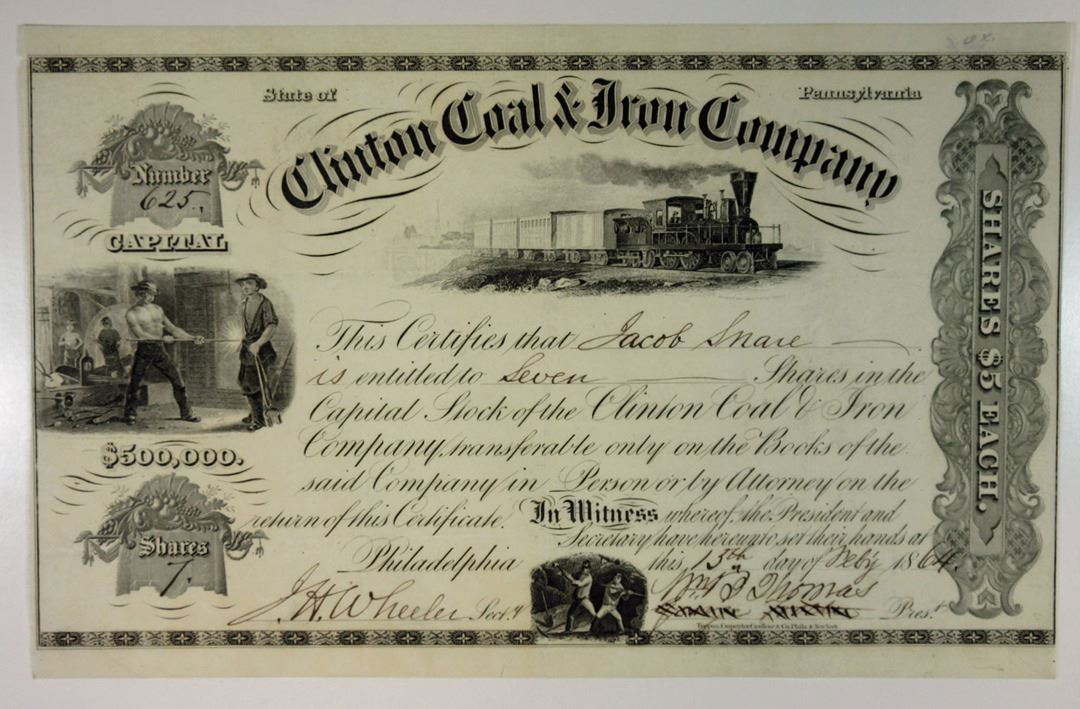 State of
Pennsylvania
Clinton Coal & Iron Company
Number
625.
CAPITAL
$500,000.
Shares
7.
SHARES $5 EACH.
This Certifies that Jacob Snare
is entitled to Seven Shares in the
Capital Stock of the Clinton Coal & Iron
Company, transferable only on the Books of the
said Company in Person or by Attorney on the
return of this Certificate. In Witness whereof, the President and
Secretary have hereunto set their hands at
Philadelphia this, 13th day of Feb'y 1864.
J.H. Wheeler Sect.y
Wm. B Thomas
Pres.t